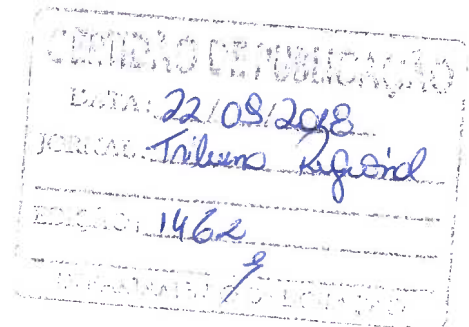 CERTIDÃO DE PUBLICAÇÃO
DATA: 22/09/2018
JORNAL: Tribuna Regional
EDIÇÃO: 1462